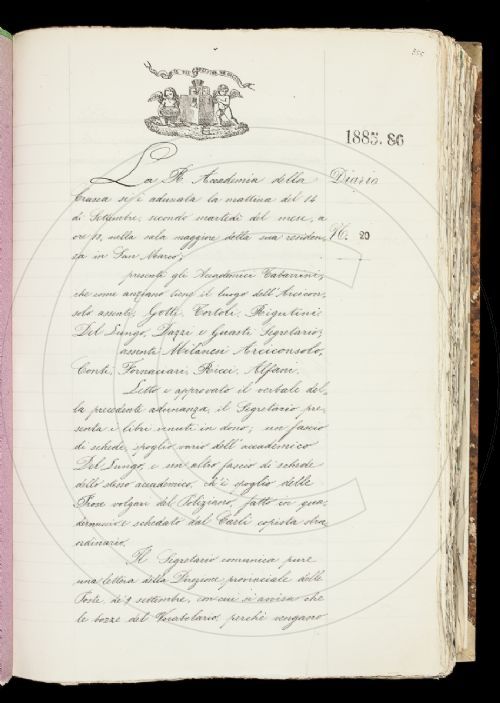 355
1885.86
La R. Accademia della
Diario
Crusca si è adunata la mattina del 14
di Settembre, secondo martedì del mese, a
ore 12, nella sala maggiore della sua residen-
N.° 20
za in San Marco;
presenti gli Accademici Tabarrini,
che come anziano tiene il luogo dell'Arcicon-
solo assente, Gotti, Tortoli, Rigutini
Del Lungo, Dazzi e Guasti Segretario;
assenti Milanesi Arciconsolo,
Conti, Fornaciari, Ricci, Alfani.
Letto e approvato il verbale del-
la precedente adunanza, il Segretario pre-
senta i libri venuti in dono; un fascio
di schede, spoglio vario dell'accademico
Del Lungo, e un altro fascio di schede
dello stesso accademico, ch'è spoglio delle
Prose volgari del Poliziano, fatto in qua-
dernuccio e schedato dal Carli copista stra-
ordinario.
Il Segretario comunica pure
una lettera della Direzione provinciale delle
Poste, de' 9 settembre, con cui si avvisa che
le bozze del Vocabolario, perchè vengano